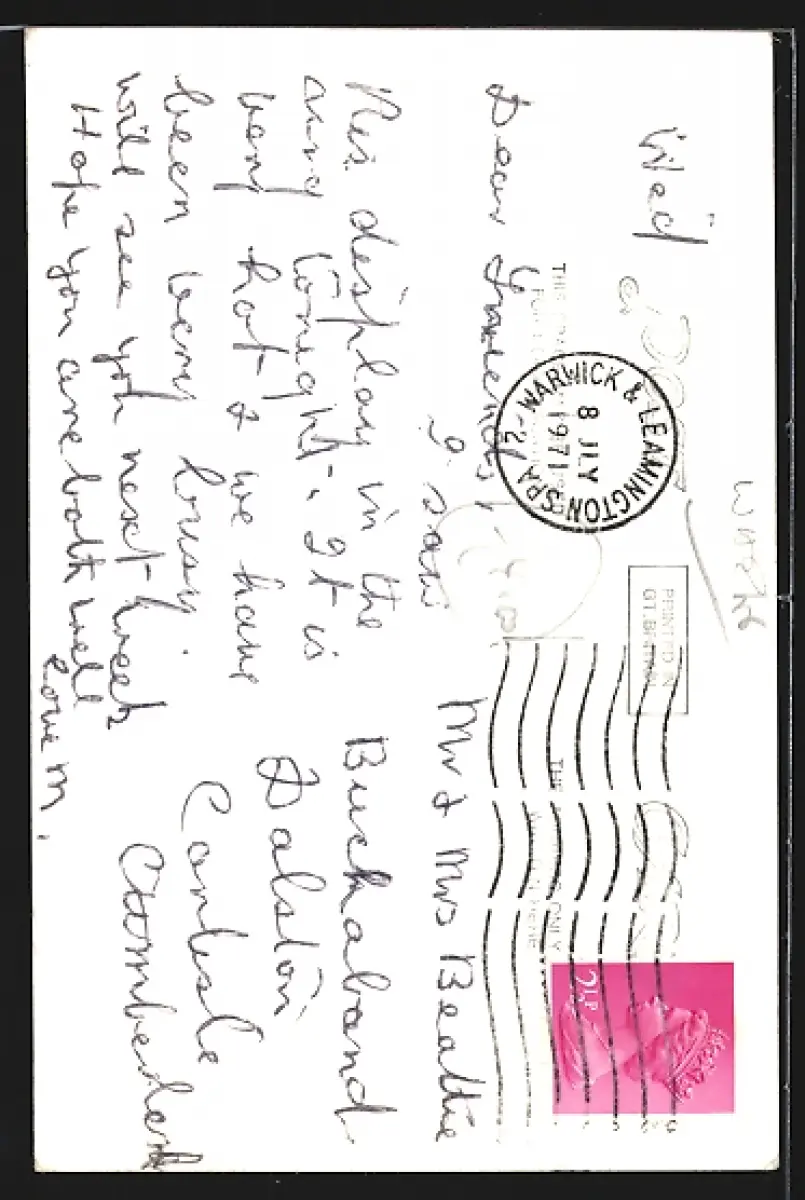 Wed
Dear
I saw
this display in the
and tonight. It is
very hot & we have
been very busy.
will see you next week
Hope you are both well
love M.
Mr & Mrs Beattie
Buckabank
Dalston
Carlisle
Cumberland
WARWICK & LEAMINGTON SPA
8 JLY
1971
PRINTED IN
GT. BRITAIN
2½P